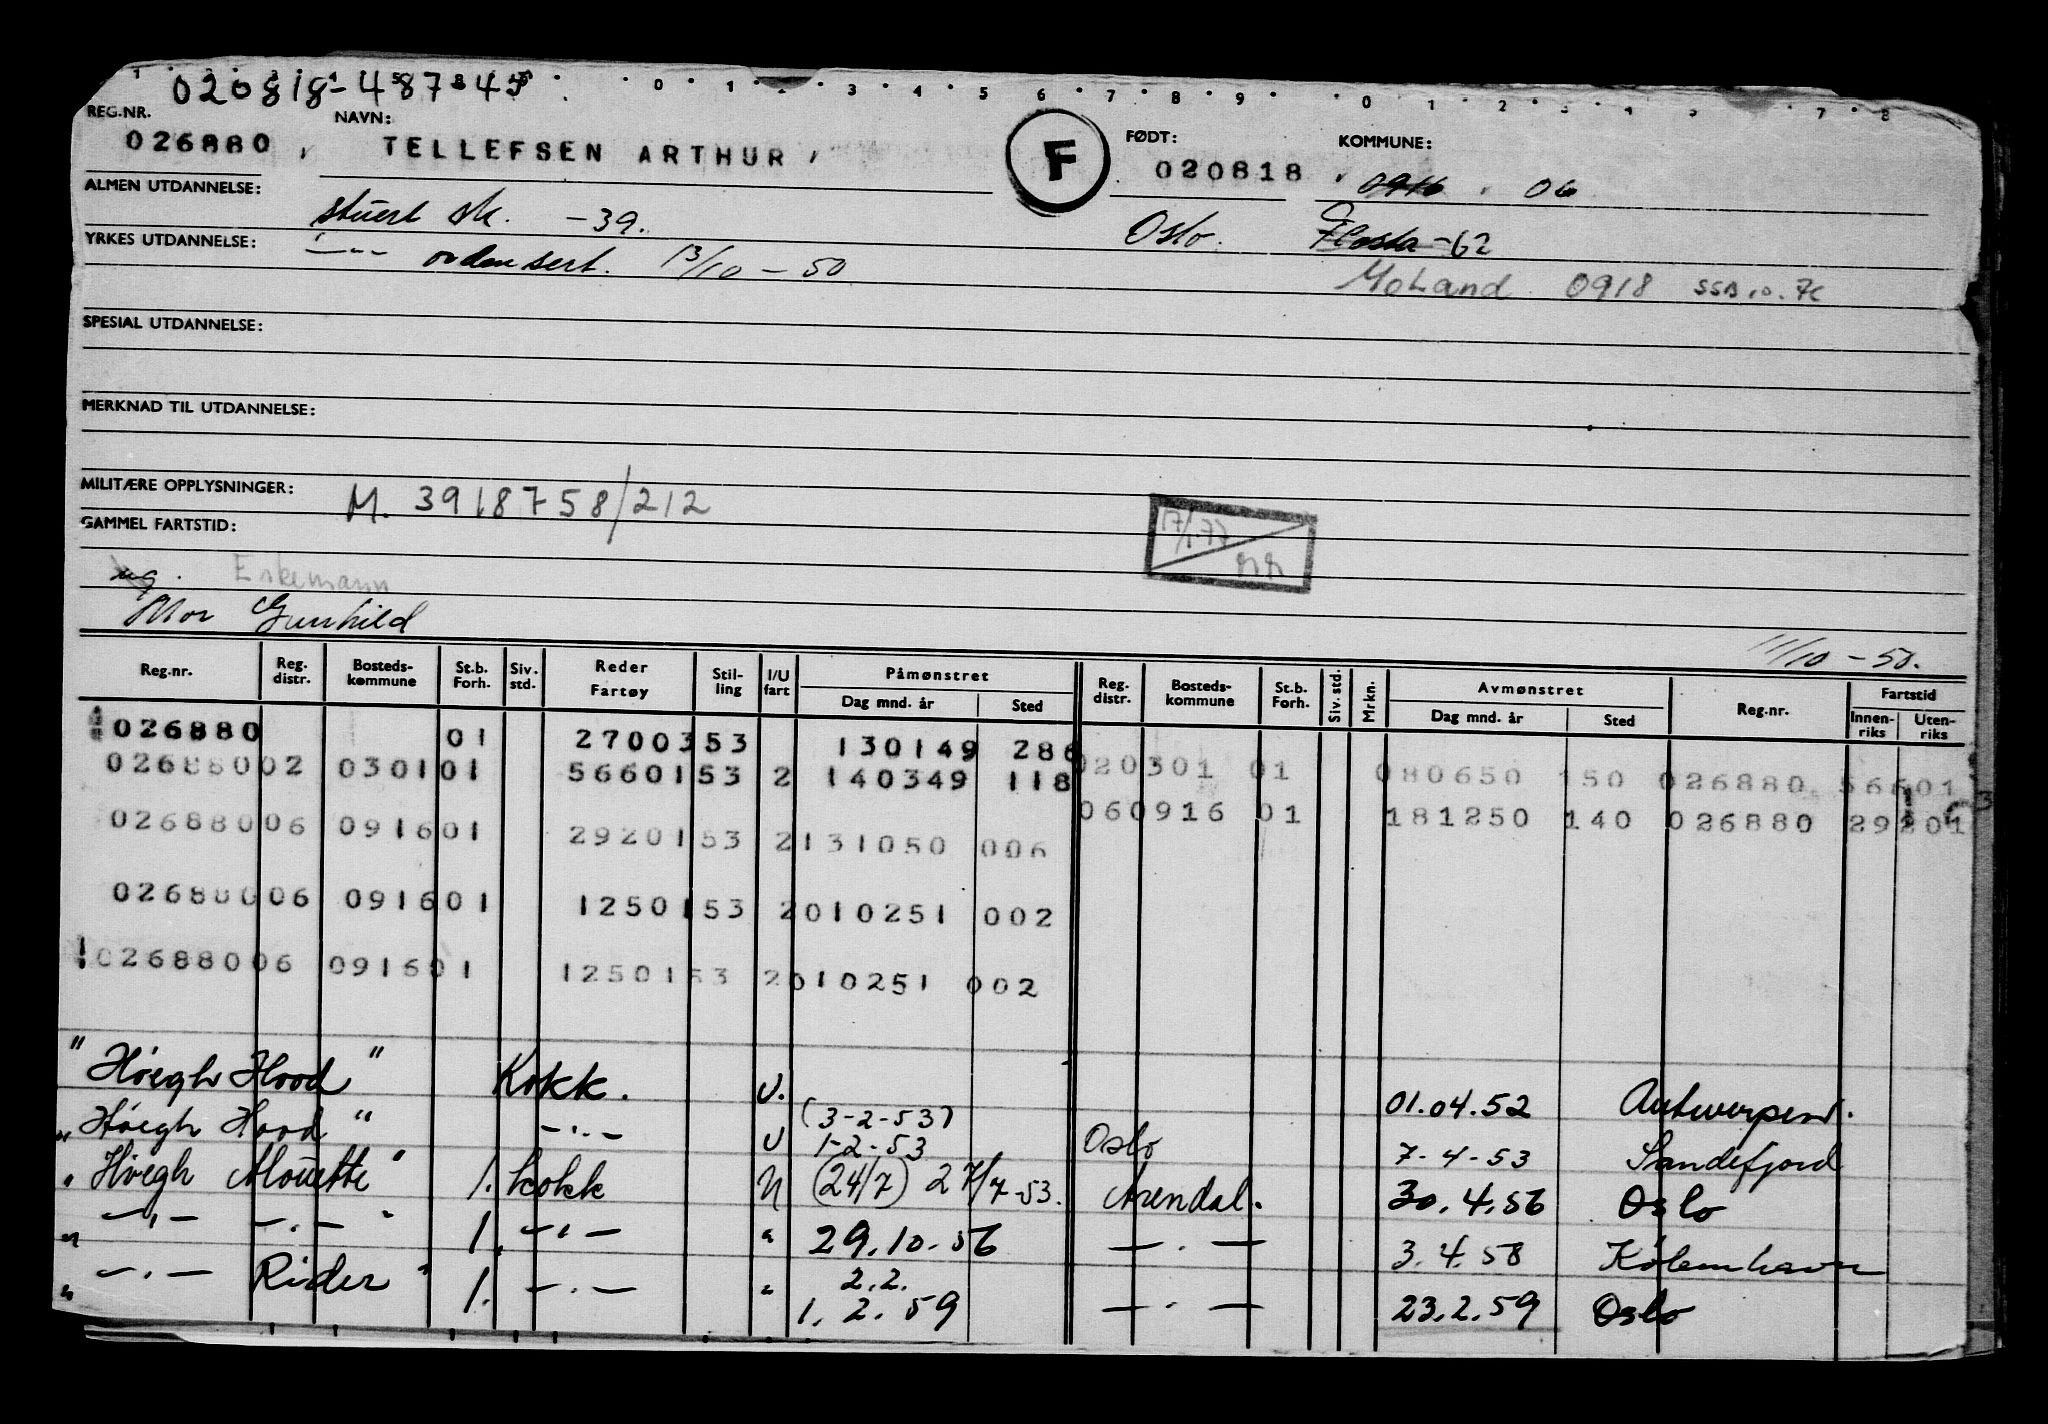 020818-48745
REG.NR. NAVN: FØDT: KOMMUNE:
026880 TELLEFSEN ARTHUR F 020818 0916 06
ALMEN UTDANNELSE: stuert sk. -39. Oslo. Flosta -62
YRKES UTDANNELSE: -"- orden sert. 13/10-50 Moland 0918
SPESIAL UTDANNELSE:
MERKNAD TIL UTDANNELSE:
MILITÆRE OPPLYSNINGER: M. 3918758/212
GAMMEL FARTSTID: 17/1.77
ug. Eskemann
Mor Gunhild
11/10-50.
Reg.nr. Reg. distr. Bosteds- kommune St.b. Forh. Siv. std. Reder Fartøy Stil- ling I/U fart Påmønstret Dag mnd. år Sted Reg. distr. Bosteds- kommune St.b. Forh. Siv. std. Mrkn. Avmønstret Dag mnd. år Sted Reg.nr. Fartstid Innen- riks Uten- riks
026880 01 2700353 130149 286
02688002 030101 5660153 2 140349 118 020301 01 080650 150 026880 56601
02688006 091601 2920153 2131050 006 060916 01 181250 140 026880 29201
02688006 091601 1250153 2010251 002
02688006 091601 1250153 2010251 002
"Höegh Hood" Kokk. U. 01.04.52 Antwerpen.
"Höegh Hood" -.- U (3-2-53) 1-2-53 Oslo 7-4-53 Sandefjord
"Höegh Mouette" 1. kokk U (24/7) 27/7-53. Arendal. 30.4.56 Oslo
" -.- -.- " 1. -.- " 29.10.56 -.- 3.4.58 København
" -.- Rider" 1. -.- " 2.2. 1.2.59 -.- 23.2.59 Oslo